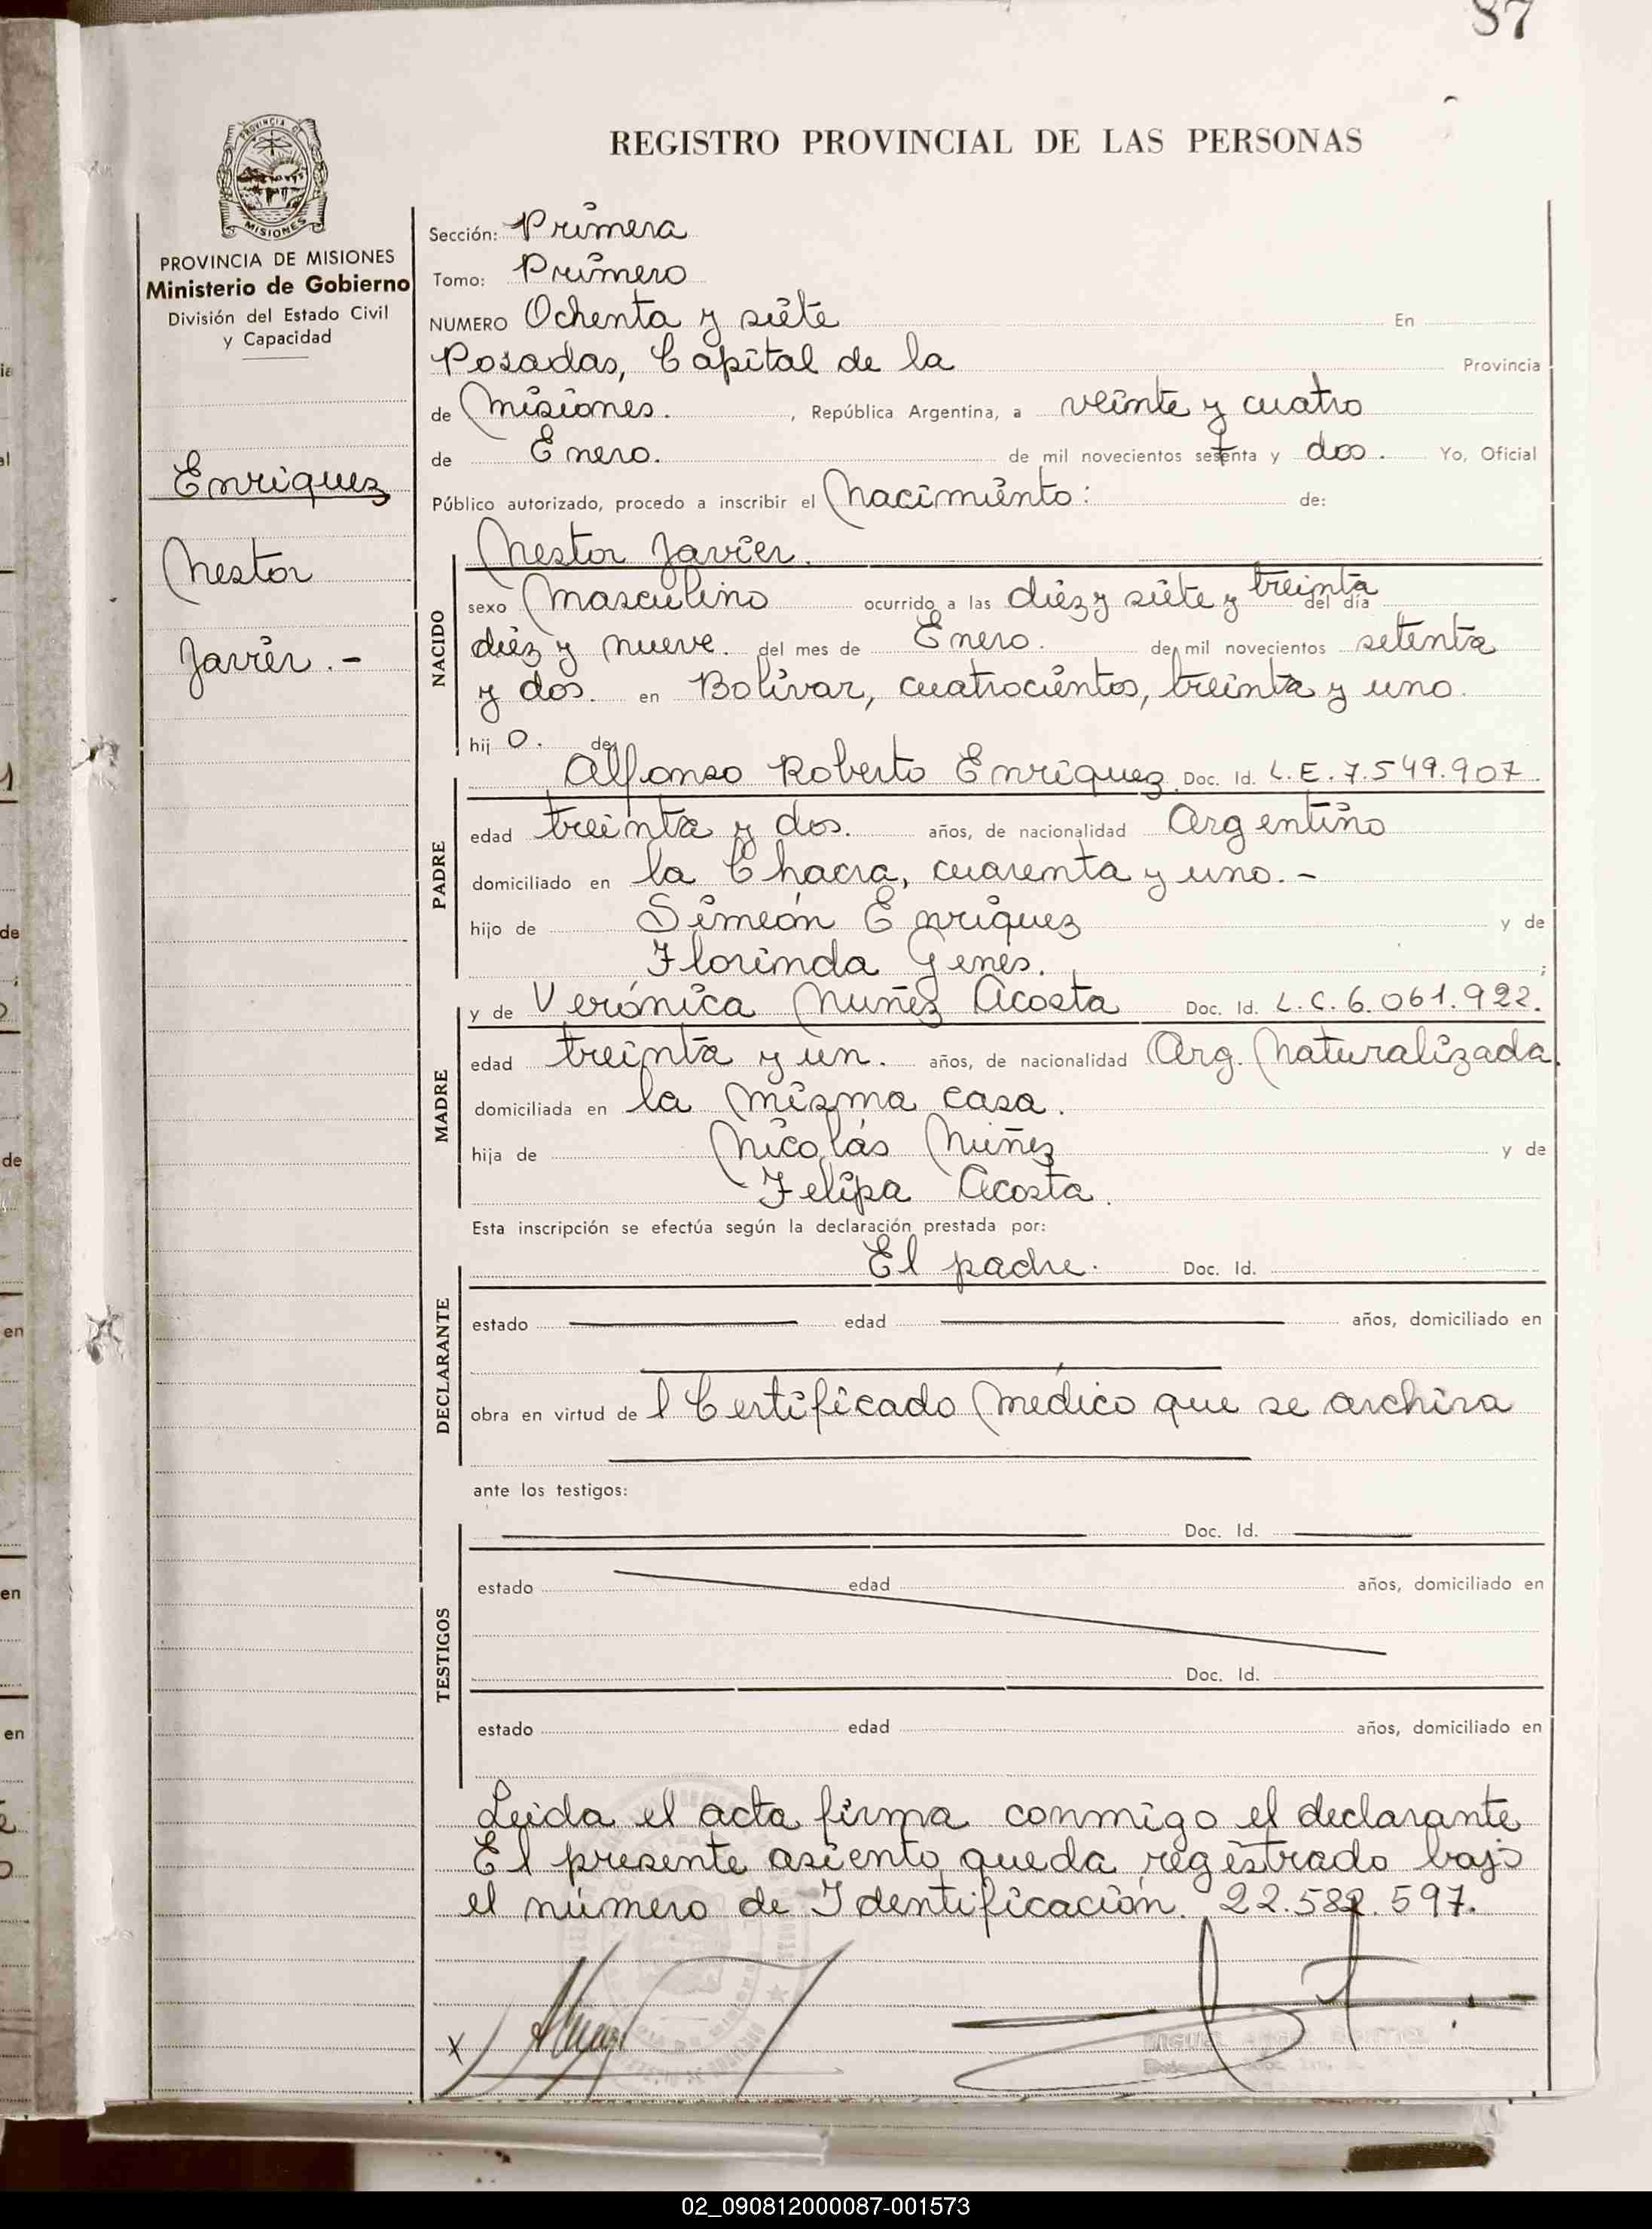 87
REGISTRO PROVINCIAL DE LAS PERSONAS
PROVINCIA DE
MISIONES
PROVINCIA DE MISIONES
Ministerio de Gobierno
División del Estado Civil
y Capacidad
Enriquez
Nestor
Javier.-
Sección: Primera
Tomo: Primero
NUMERO Ochenta y siete En
Posadas, Capital de la Provincia
de Misiones. , República Argentina, a veinte y cuatro
de Enero. de mil novecientos setenta y dos. Yo, Oficial
Público autorizado, procedo a inscribir el Nacimiento: de:
NACIDO
Nestor Javier.
sexo Masculino ocurrido a las diez y siete y treinta del día
diez y nueve. del mes de Enero. de mil novecientos setenta
y dos. en Bolívar, cuatrocientos, treinta y uno.
hij o. de
PADRE
Alfonso Roberto Enríquez. Doc. Id. L.E. 7.549.907.
edad treinta y dos. años, de nacionalidad Argentino
domiciliado en la Chacra, cuarenta y uno.-
hijo de Simeón Enriquez y de
Florinda Genes. ;
MADRE
y de Verónica Nuñez Acosta Doc. Id. L.C. 6.061.922.
edad treinta y un. años, de nacionalidad Arg. Naturalizada.
domiciliada en la misma casa.
hija de Nicolás Nuñez y de
Felipa Acosta.
Esta inscripción se efectúa según la declaración prestada por:
DECLARANTE
El padre. Doc. Id.
estado edad años, domiciliado en
obra en virtud de l Certificado Médico que se archiva
ante los testigos:
TESTIGOS
Doc. Id.
estado edad años, domiciliado en
Doc. Id.
estado edad años, domiciliado en
Leida el acta firma conmigo el declarante
El presente asiento queda registrado bajo
el número de Identificación. 22.582.597.
x
02_090812000087-001573